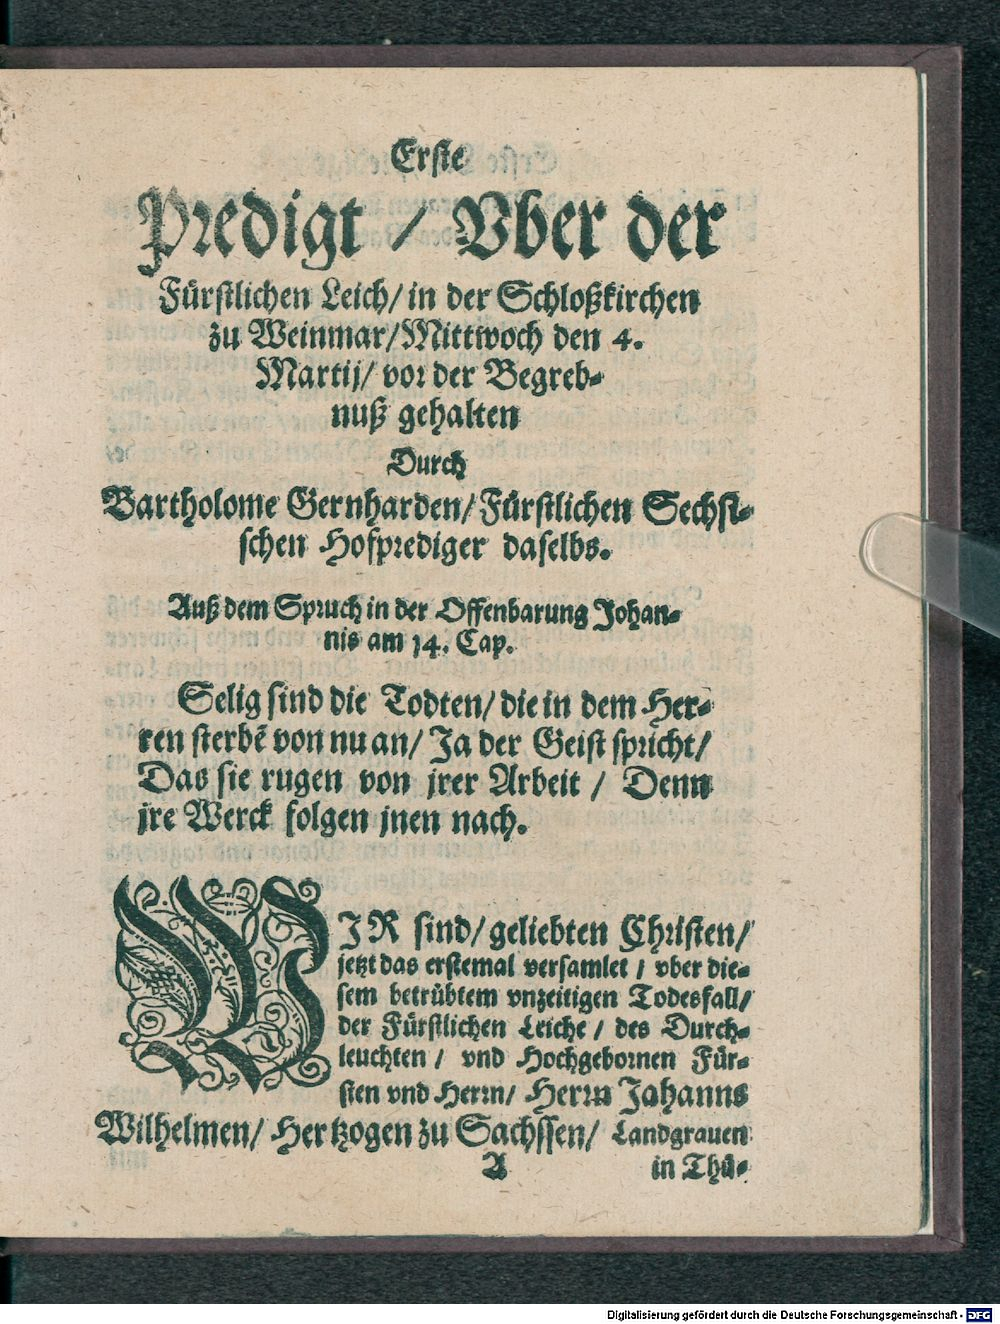 Erste
Predigt / Vber der
Fürstlichen Leich/ in der Schloßkirchen
zu Weinmar/ Mittwoch den 4.
Martij/ vor der Begreb-
nuß gehalten
Durch
Bartholome Gernharden/ Fürstlichen Sechsi-
schen Hofprediger daselbs.
Auß dem Spruch in der Offenbarung Johan-
nis am 14. Cap.
Selig sind die Todten/ die in dem Her-
ren sterbẽ von nu an/ Ja der Geist spricht/
Das sie rugen von jrer Arbeit / Denn
jre Werck folgen jnen nach.
WIR sind/ geliebten Christen/
jetzt das erstemal versamlet / vber die-
sem betrübtem vnzeitigen Todesfall/
der Fürstlichen Leiche / des Durch-
leuchten / vnd Hochgebornen Für-
sten vnd Herrn/ Herrn Johanns
Wilhelmen/ Hertzogen zu Sachssen/ Landgrauen
A in Thü-
Digitalisierung gefördert durch die Deutsche Forschungsgemeinschaft - DFG